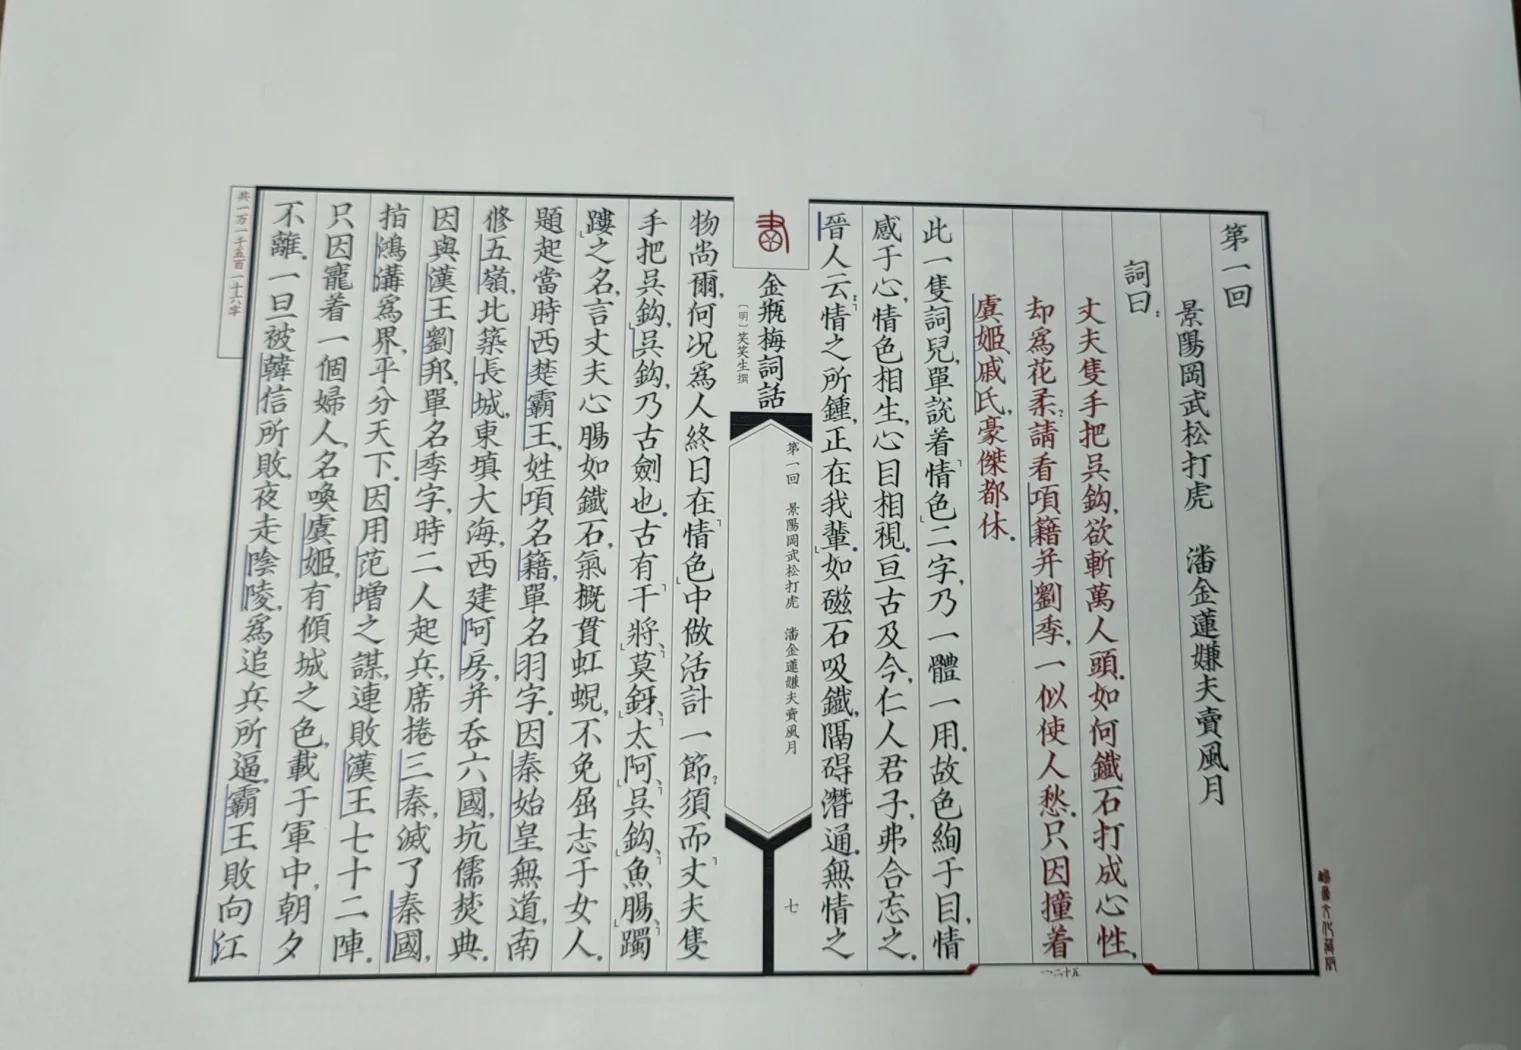 第一回
景陽岡武松打虎　潘金蓮嫌夫賣風月
詞曰：
丈夫隻手把吳鈎，欲斬萬人頭。如何鐵石打成心性，
却爲花柔？請看項籍并劉季，一似使人愁。只因撞着
虞姬、戚氏，豪傑都休。
此一隻詞兒，單説着「情色」二字，乃一體一用。故色絢于目，情
感于心，情色相生，心目相視。亘古及今，仁人君子，弗合忘之。
晉人云：「情之所鍾，正在我輩。」如磁石吸鐵，隔碍潛通。無情之
書
金瓶梅詞話
〔明〕笑笑生撰
第一回　景陽岡武松打虎　潘金蓮嫌夫賣風月
七
物尚爾，何况爲人終日在「情色」中做活計一節？須而「丈夫隻
手把吳鈎」，吳鈎，乃古劍也。古有「干將」、「莫釾」、「太阿」、「吳鈎」、「魚腸」、「躅
鏤」之名，言丈夫心腸如鐵石，氣概貫虹蜺，不免屈志于女人。
題起當時西楚霸王，姓項名籍，單名羽字。因秦始皇無道，南
修五嶺，北築長城，東填大海，西建阿房，并吞六國，坑儒焚典。
因與漢王劉邦，單名季字，時二人起兵，席捲三秦，滅了秦國，
指鴻溝爲界，平分天下。因用范增之謀，連敗漢王七十二陣。
只因寵着一個婦人，名喚虞姬，有傾城之色，載于軍中，朝夕
不離。一旦被韓信所敗，夜走陰陵，爲追兵所逼。霸王敗向江
共一万一千五百一十六字